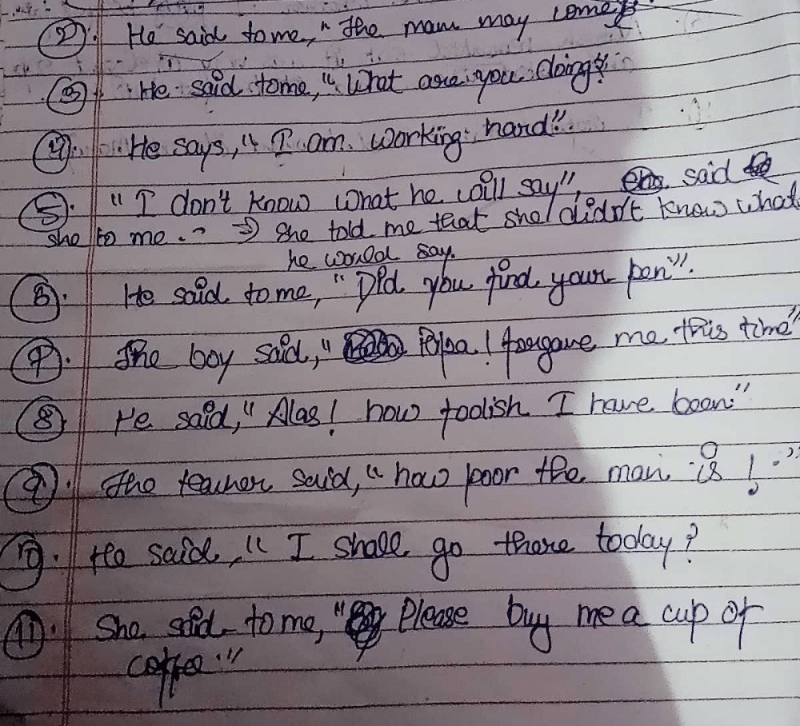 2). He said to me, "The man may come".
3). He said to me, "What are you doing?"
4). He says, "I am working hard".
5). "I don't know what he will say", said
she to me. → She told me that she didn't know what
he would say.
6). He said to me, "Did you find your pen".
7). The boy said, " Papa! forgave me this time"
8) He said, "Alas! how foolish I have been"
9). The teacher said, "how poor the man is!"
10). He said, "I shall go there today?
11). She said to me, " Please buy me a cup of
coffee."